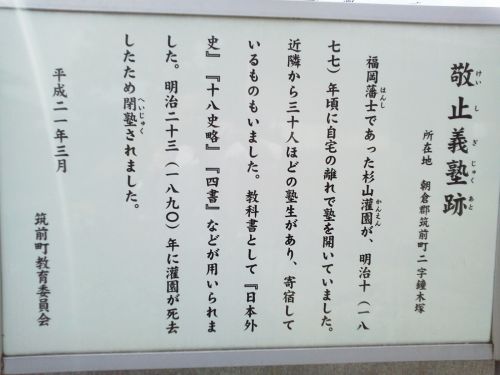 敬止義塾跡
けいしぎじゅくあと
所在地 朝倉郡筑前町二字鐘木塚
福岡藩士であった杉山灌園が、明治十(一八
はんし
かんえん
七七)年頃に自宅の離れで塾を開いていました。
近隣から三十人ほどの塾生があり、寄宿して
いるものもいました。教科書として『日本外
史』『十八史略』『四書』などが用いられま
した。明治二十三(一八九〇)年に灌園が死去
したため閉塾されました。
へいじゅく
平成二一年三月
筑前町教育委員会